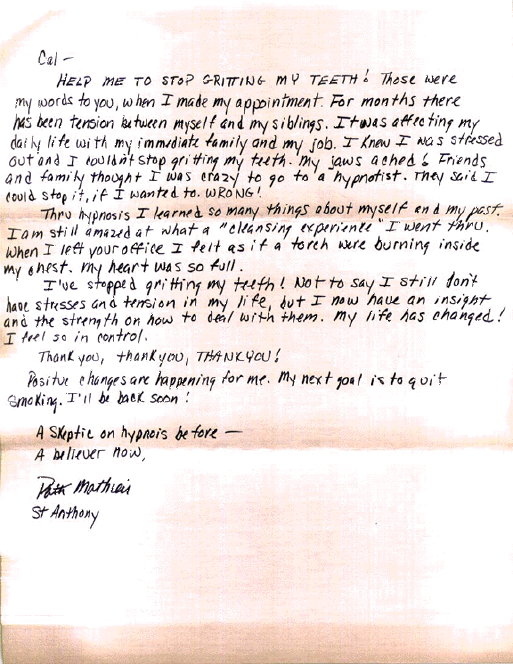 Cal -
HELP ME TO STOP GRITTING MY TEETH! Those were
my words to you, when I made my appointment. For months there
has been tension between myself and my siblings. It was affecting my
daily life with my immediate family and my job. I knew I was stressed
out and I couldn't stop gritting my teeth. My jaws ached! Friends
and family thought I was crazy to go to a hypnotist. They said I
could stop it, if I wanted to. WRONG!
Thru hypnosis I learned so many things about myself and my past.
I am still amazed at what a "cleansing experience" I went thru.
When I left your office I felt as if a torch were burning inside
my chest. My heart was so full.
I've stopped gritting my teeth! Not to say I still don't
have stresses and tension in my life, but I now have an insight
and the strength on how to deal with them. My life has changed!
I feel so in control.
Thank you, thank you, THANK YOU!
Positive changes are happening for me. My next goal is to quit
smoking. I'll be back soon!
A Skeptic on hypnois before -
A believer now,
Mathieis
St Anthony